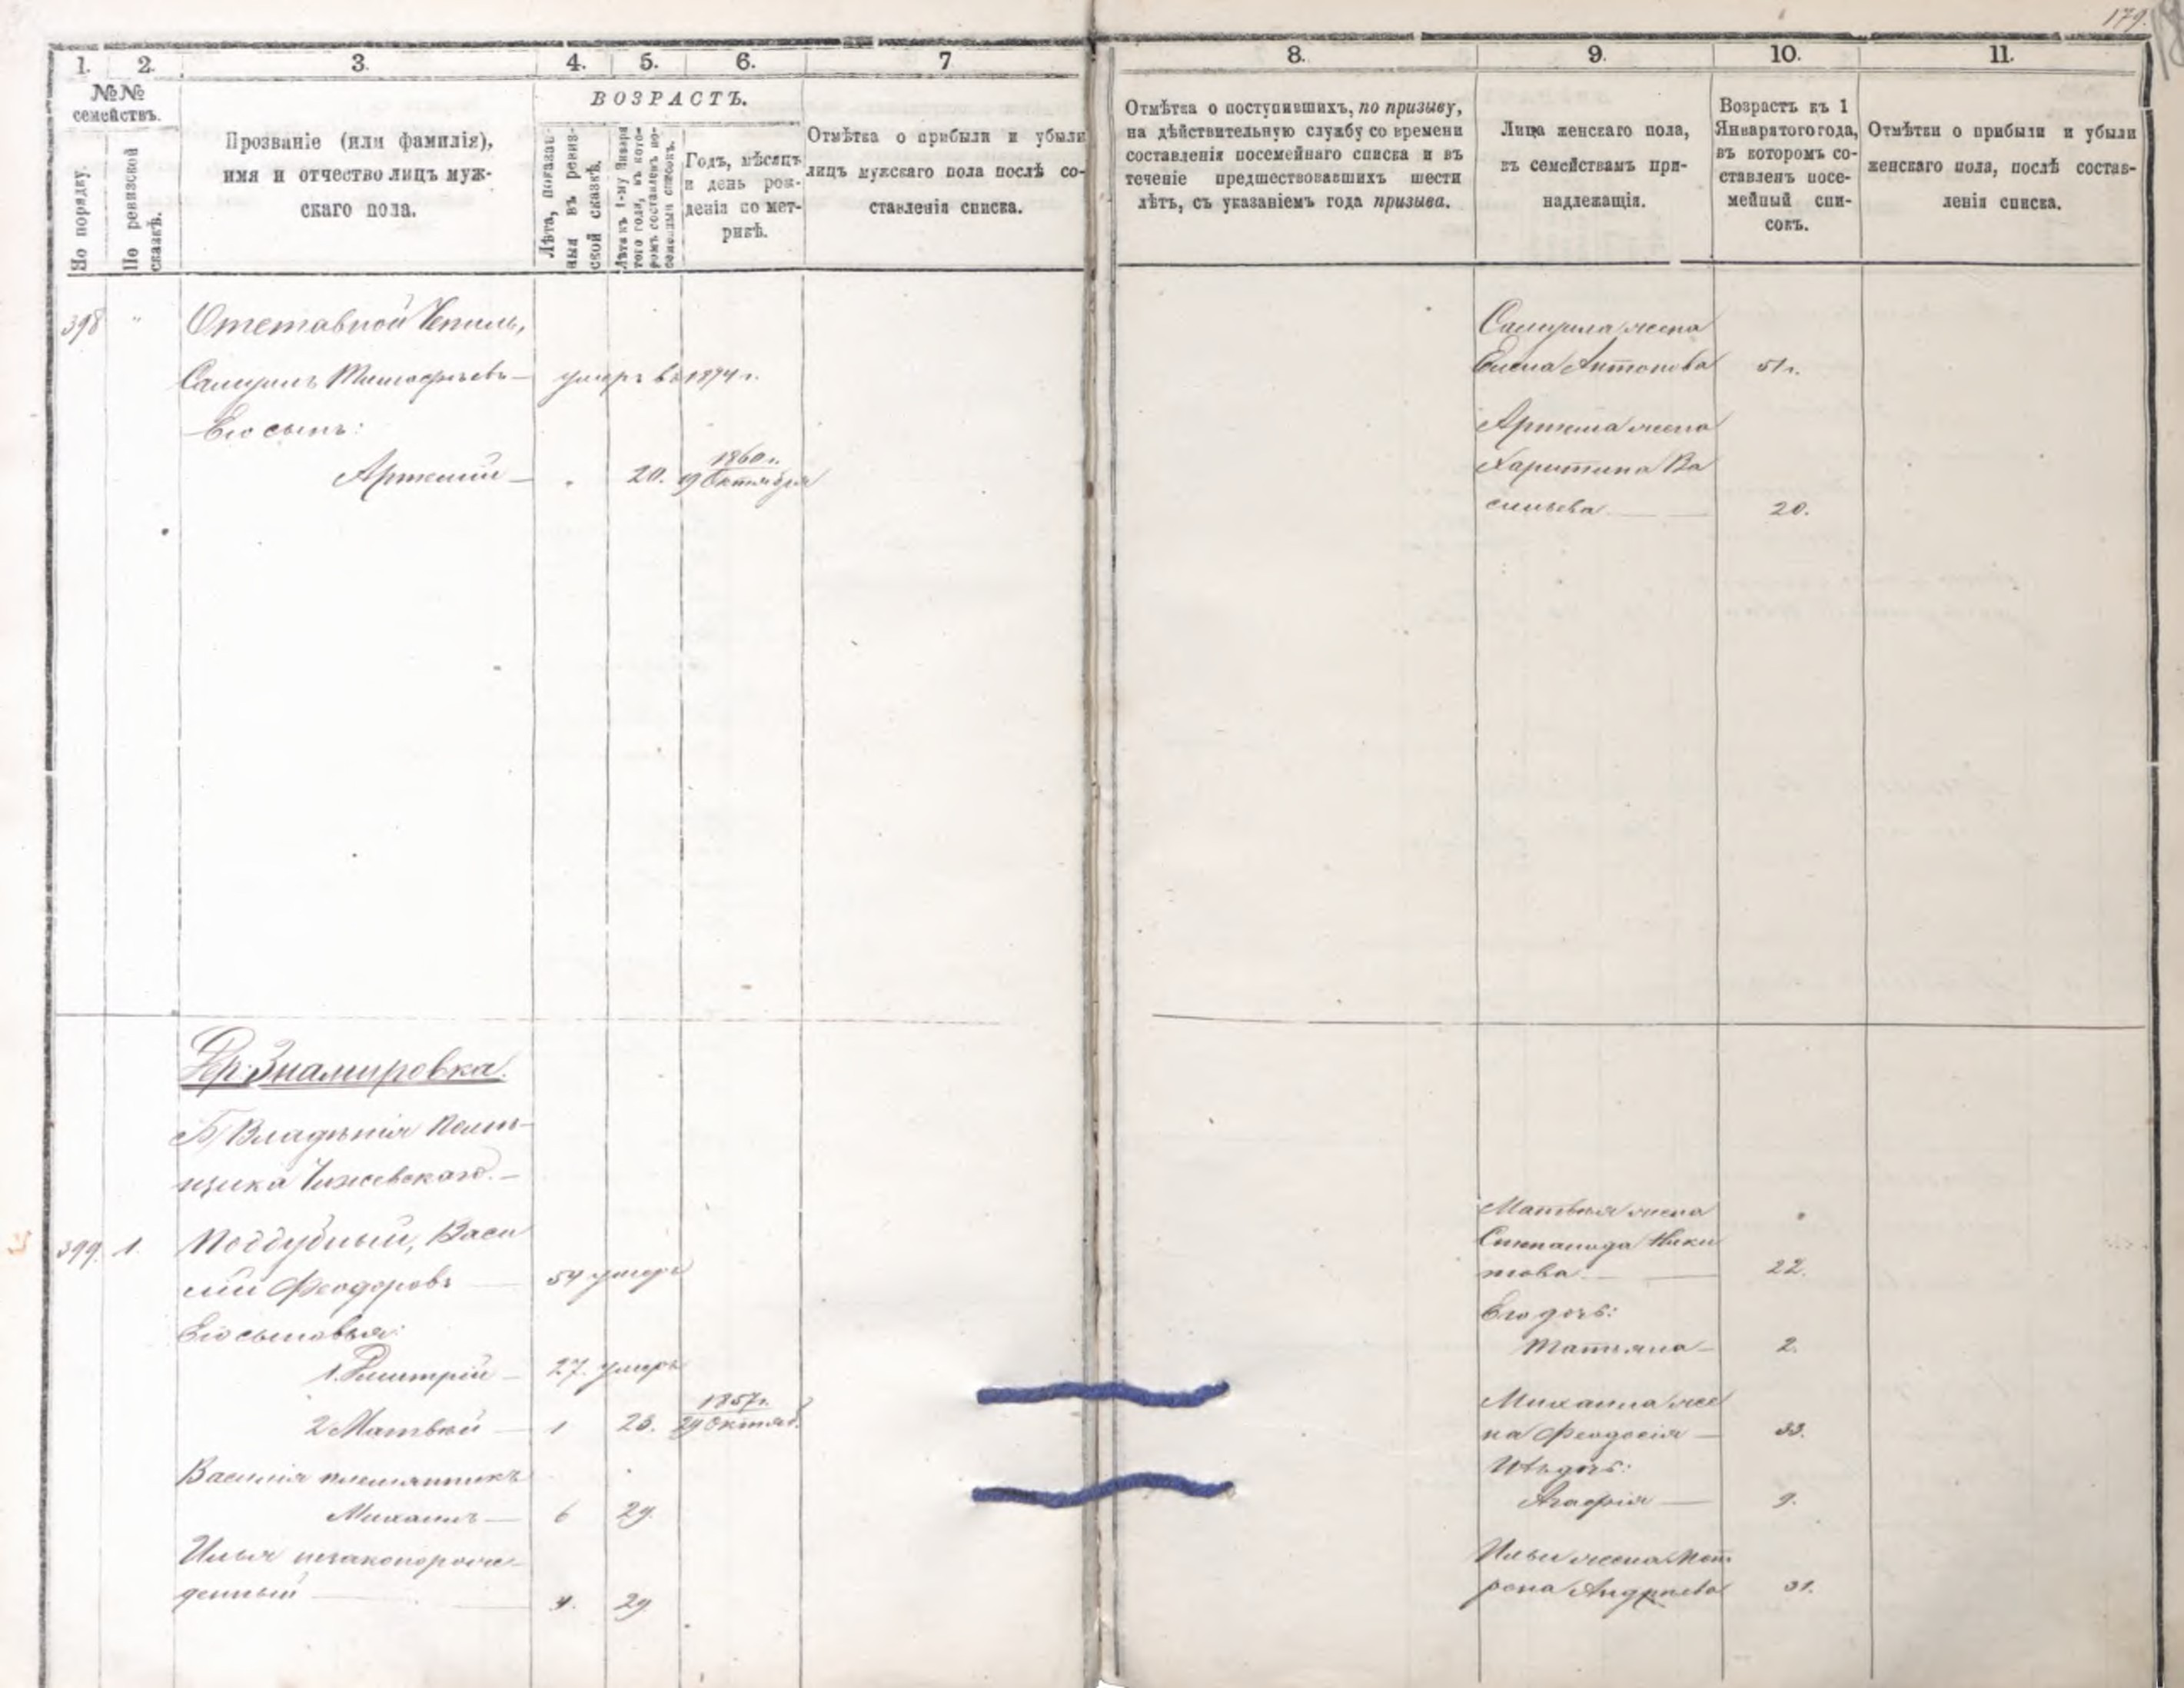 179.
1. 2. 3. 4. 5. 6. 7
№№ семействъ.
По порядку.
По ревизской сказкѣ.
Прозваніе (или фамилія),
имя и отчество лицъ муж-
скаго пола.
ВОЗРАСТЪ.
Лѣта, показан-
ныя въ ревиз-
ской сказкѣ.
Лѣта къ 1-му Января
того года, въ кото-
ромъ составленъ по-
семейный списокъ.
Годъ, мѣсяцъ
и день рож-
денія по мет-
рикѣ.
Отмѣтка о прибыли и убыли
лицъ мужскаго пола послѣ со-
ставленія списка.
398 " Отставной Чепиль,
Самуилъ Тимофѣевъ — умеръ въ 1874 г.
Его сынъ:
Артемій — " 20. 1860 г.
19 Октября
Дер. Знамировка.
Б. Владѣнія Помѣ-
щика Чижевскаго. —
399. 1. Поддубный, Васи
лій Феодоровъ — 54 умеръ
Его сыновья:
1. Дмитрій — 27. умеръ
2 Матвѣй — 1 23. 1857 г.
29 Октяб.
Василія племянникъ
Михаилъ — 6 29.
Илья незаконорож-
денный — 4. 29
8. 9. 10. 11.
Отмѣтка о поступившихъ, по призыву,
на дѣйствительную службу со времени
составленія посемейнаго списка и въ
теченіе предшествовавшихъ шести
лѣтъ, съ указаніемъ года призыва.
Лица женскаго пола,
къ семействамъ при-
надлежащія.
Возрастъ къ 1
Января того года,
въ которомъ со-
ставленъ посе-
мейный спи-
сокъ.
Отмѣтки о прибыли и убыли
женскаго пола, послѣ состав-
ленія списка.
Самуила жена
Елена Антонова 51 г.
Артема жена
Харитина Ва
сильева — 20.
Матвѣя жена
Степанида Ники
това — 22.
Его дочь:
Татьяна — 2.
Михаила же
на Феодосія — 33.
Ихъ дочь:
Агафія — 9.
Ильи жена Мот
рона Андреева 31.